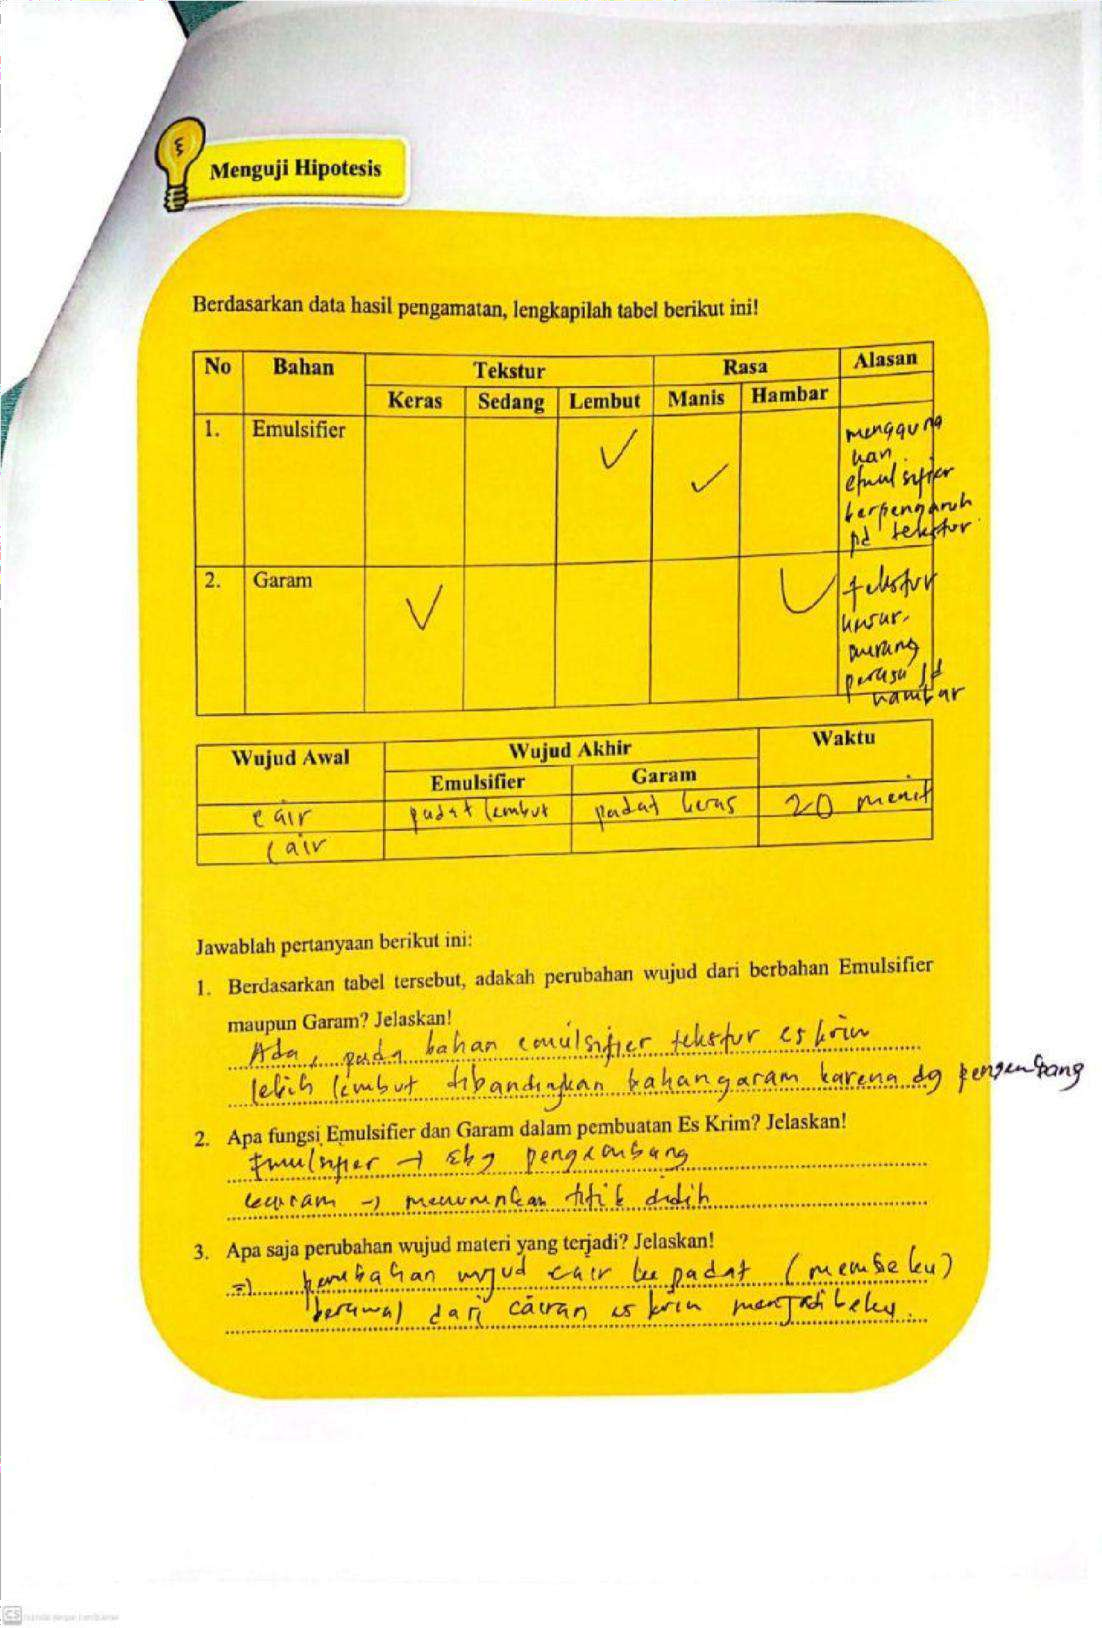 Menguji Hipotesis
Berdasarkan data hasil pengamatan, lengkapilah tabel berikut ini!
No Bahan Tekstur Rasa Alasan
Keras Sedang Lembut Manis Hambar
1. Emulsifier ✓ ✓ menggunа
kan
emulsifier
berpengaruh
pd tekstur
2. Garam ✓ ✓ tekstur
kasar.
kurang
perasa jd
hambar
Wujud Awal Wujud Akhir Waktu
Emulsifier Garam
cair padat lembut padat keras 20 menit
cair
Jawablah pertanyaan berikut ini:
1. Berdasarkan tabel tersebut, adakah perubahan wujud dari berbahan Emulsifier
maupun Garam? Jelaskan!
Ada, pada bahan emulsifier tekstur es krim
lebih lembut dibandingkan bahan garam karena dg pengembang
2. Apa fungsi Emulsifier dan Garam dalam pembuatan Es Krim? Jelaskan!
Emulsifier → sbg pengembang
Garam → menurunkan titik didih
3. Apa saja perubahan wujud materi yang terjadi? Jelaskan!
⇒ perubahan wujud cair ke padat (membeku)
berawal dari cairan es krim menjadi beku.
CS